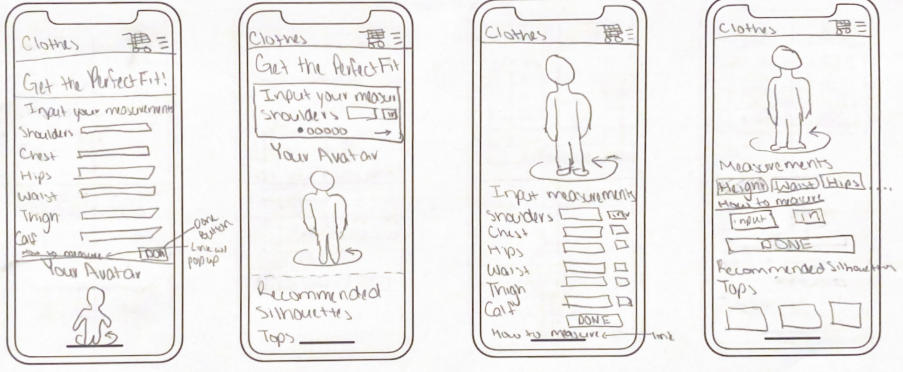 Clothes
Get the Perfect Fit!
Input your measurements
Shoulders
Chest
Hips
Waist
Thigh
Calf
How to measure
DONE
Done Button
Link w/ pop up
Your Avatar
Clothes
Get the Perfect Fit
Input your measur
Shoulders
in
Your Avatar
Recommended
Silhouettes
Tops
Clothes
Input measurements
Shoulders in
Chest
Hips
Waist
Thigh
Calf
DONE
How to measure
link
Clothes
Measurements
Height Waist Hips ....
How to measure
input in
DONE
Recommended Silhouettes
Tops